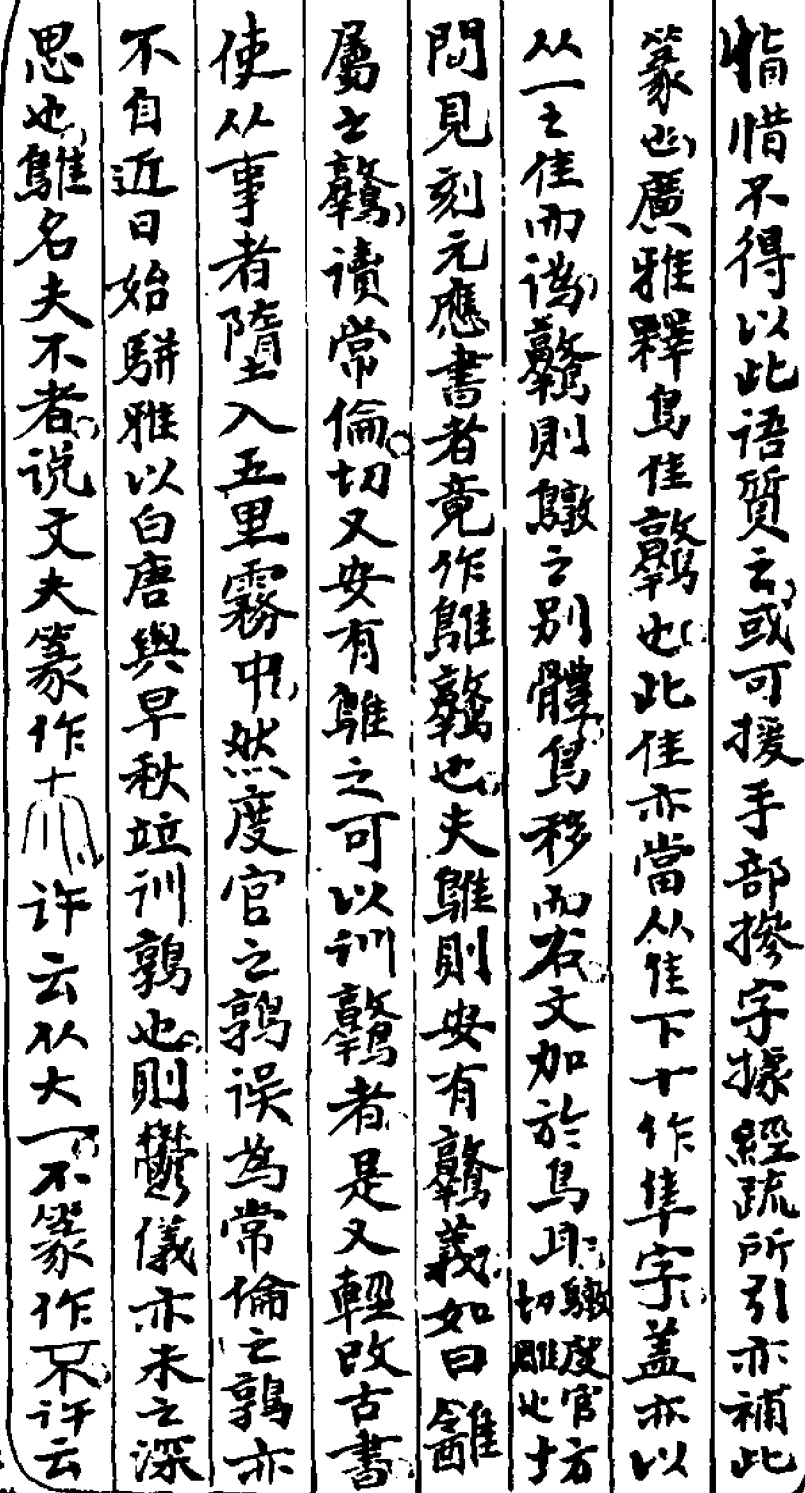 惜不得以此语質之或可援手部摻字據經疏所引亦補此
篆也廣雅釋鳥隹鷻也此隹亦當从隹下十作隼字蓋亦以
从一之隹而譌鷻則鷻之别體鳥移而右文加於鳥耳
問見刻元應書者竟作鵻鷻也夫鵻則安有鷻義如曰
屬之鷻讀常倫切又安有鵻之可以训鷻者是又輕改古書
使从事者墮入五里霧中然度官之鶉误為常倫之鶉亦
不自近日始駢雅以白唐與早秋竝训鶉也則鬱儀亦未之深
思也鵻名夫不者说文夫篆作许云从大一不篆作许云